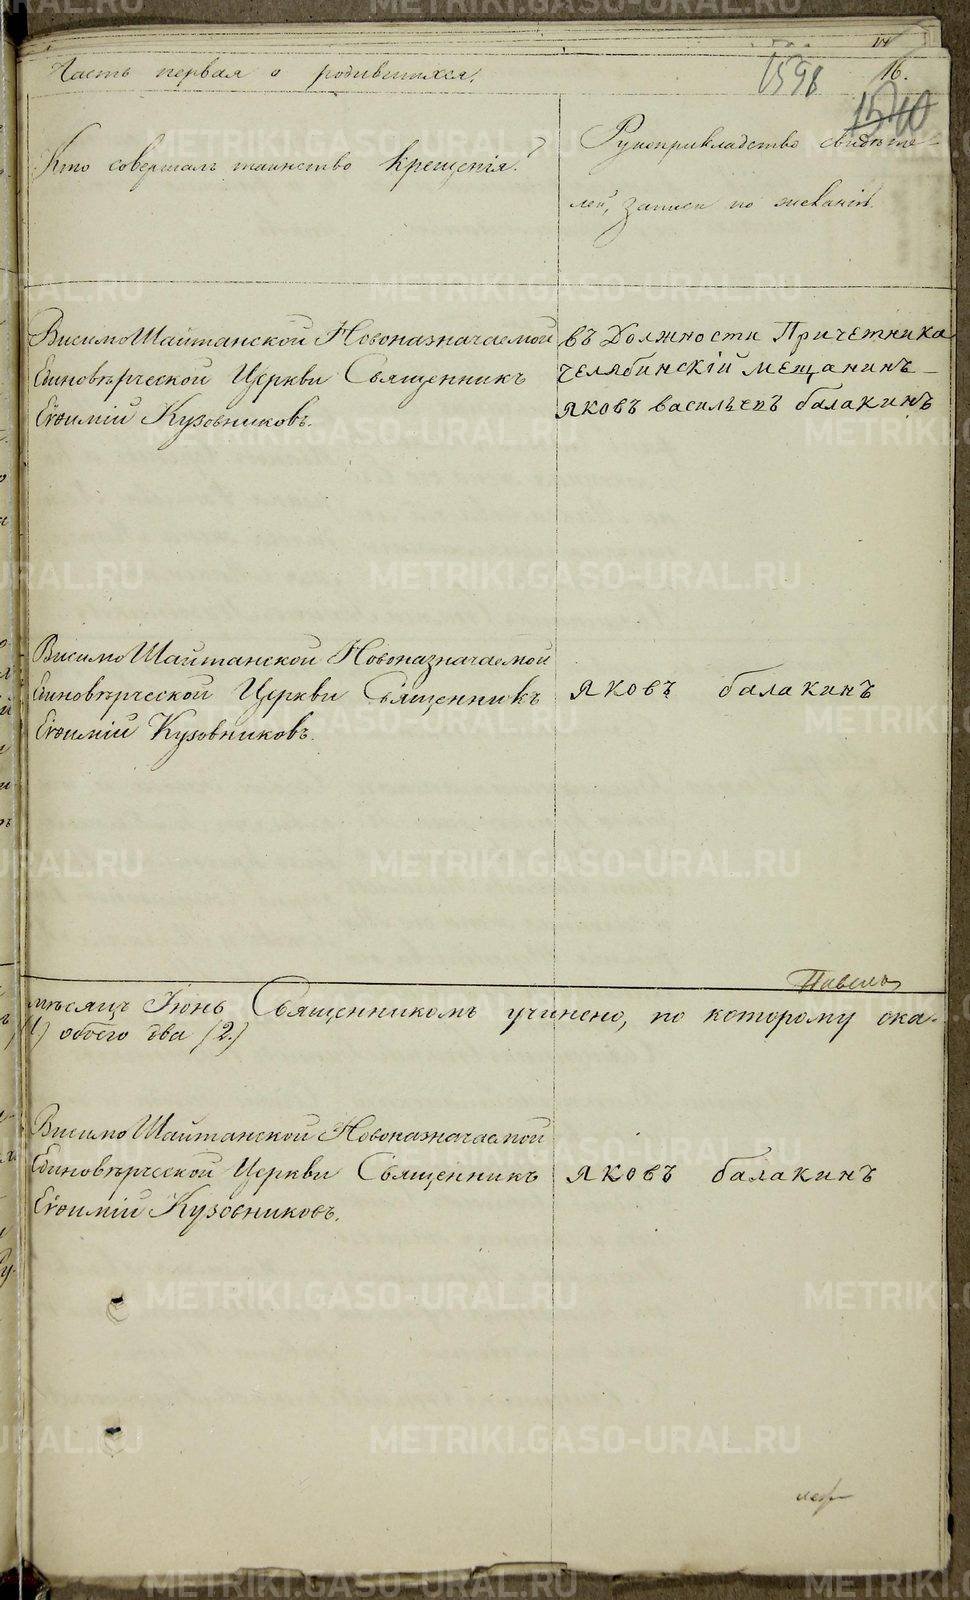 Часть первая о родившихся.
1598
16.
1540
Кто совершалъ таинство крещенія?
Рукоприкладство свидѣте-
лей, записи по желанію.
ВисимоШайтанской Новоназначаемой
Единовѣрческой Церкви Священникъ
Евѳимій Кузовниковъ.
въ Должности Причетника
челябинскій мещанинъ
яковъ васильевъ балакинъ
ВисимоШайтанской Новоназначаемой
Единовѣрческой Церкви Священникъ
Евѳимій Кузовниковъ.
яковъ балакинъ
Павелъ
мѣсяцъ Іюнь Священникомъ учинено, по которому ока-
(1) обоего два (2.)
ВисимоШайтанской Новоназначаемой
Единовѣрческой Церкви Священникъ
Евѳимій Кузовниковъ.
яковъ балакинъ
METRIKI.GASO-URAL.RU